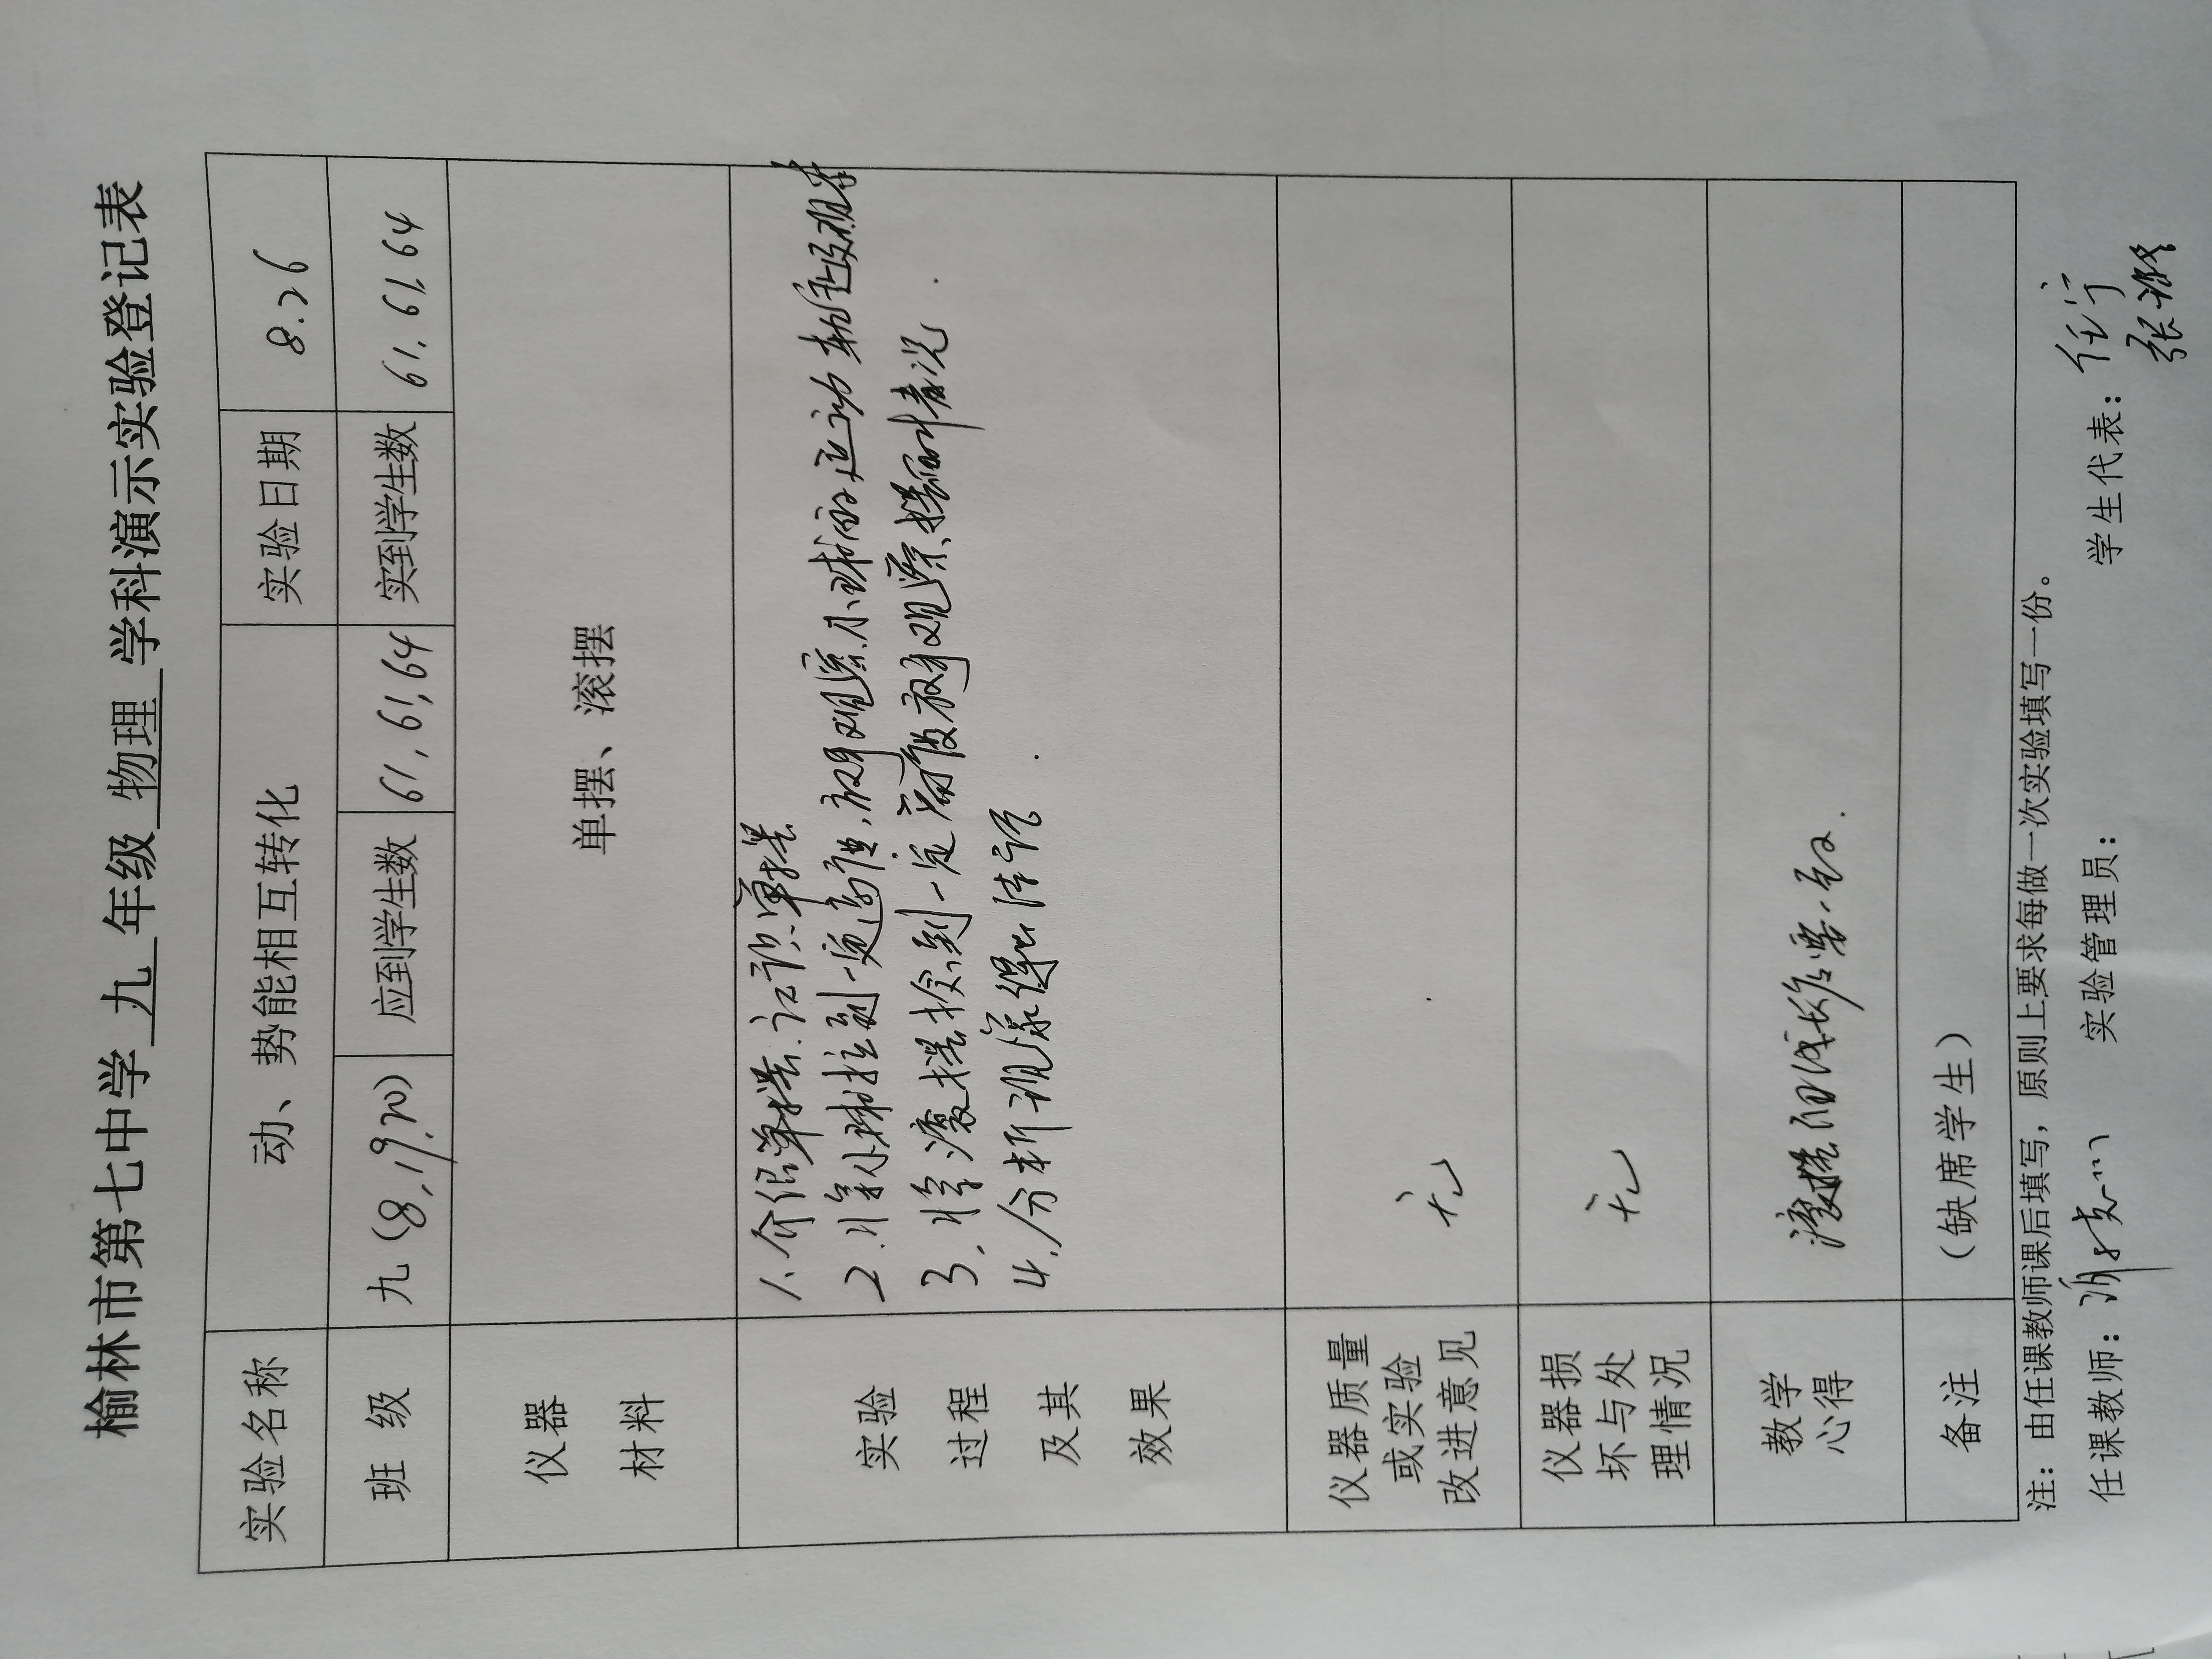 榆林市第七中学 九 年级 物理 学科演示实验登记表
实验名称 动、势能相互转化 实验日期 8.26
班 级 九(8,19,20) 应到学生数 61,61,64 实到学生数 61,61,64
仪器
材料
单摆、滚摆
实验
过程
及其
效果
1、介绍单摆、认识单摆
2.将小球拉到一定高度,放手观察小球的运动
3、将滚摆捻到一定高度放手观察、摆的情况
4、分析现象得出结论.
仪器质量
或实验
改进意见
无
仪器损
坏与处
理情况
无
教学
心得
滚摆的线
备注 (缺席学生)
注：由任课教师课后填写，原则上要求每做一次实验填写一份。
任课教师： 实验管理员： 学生代表：任宁
张